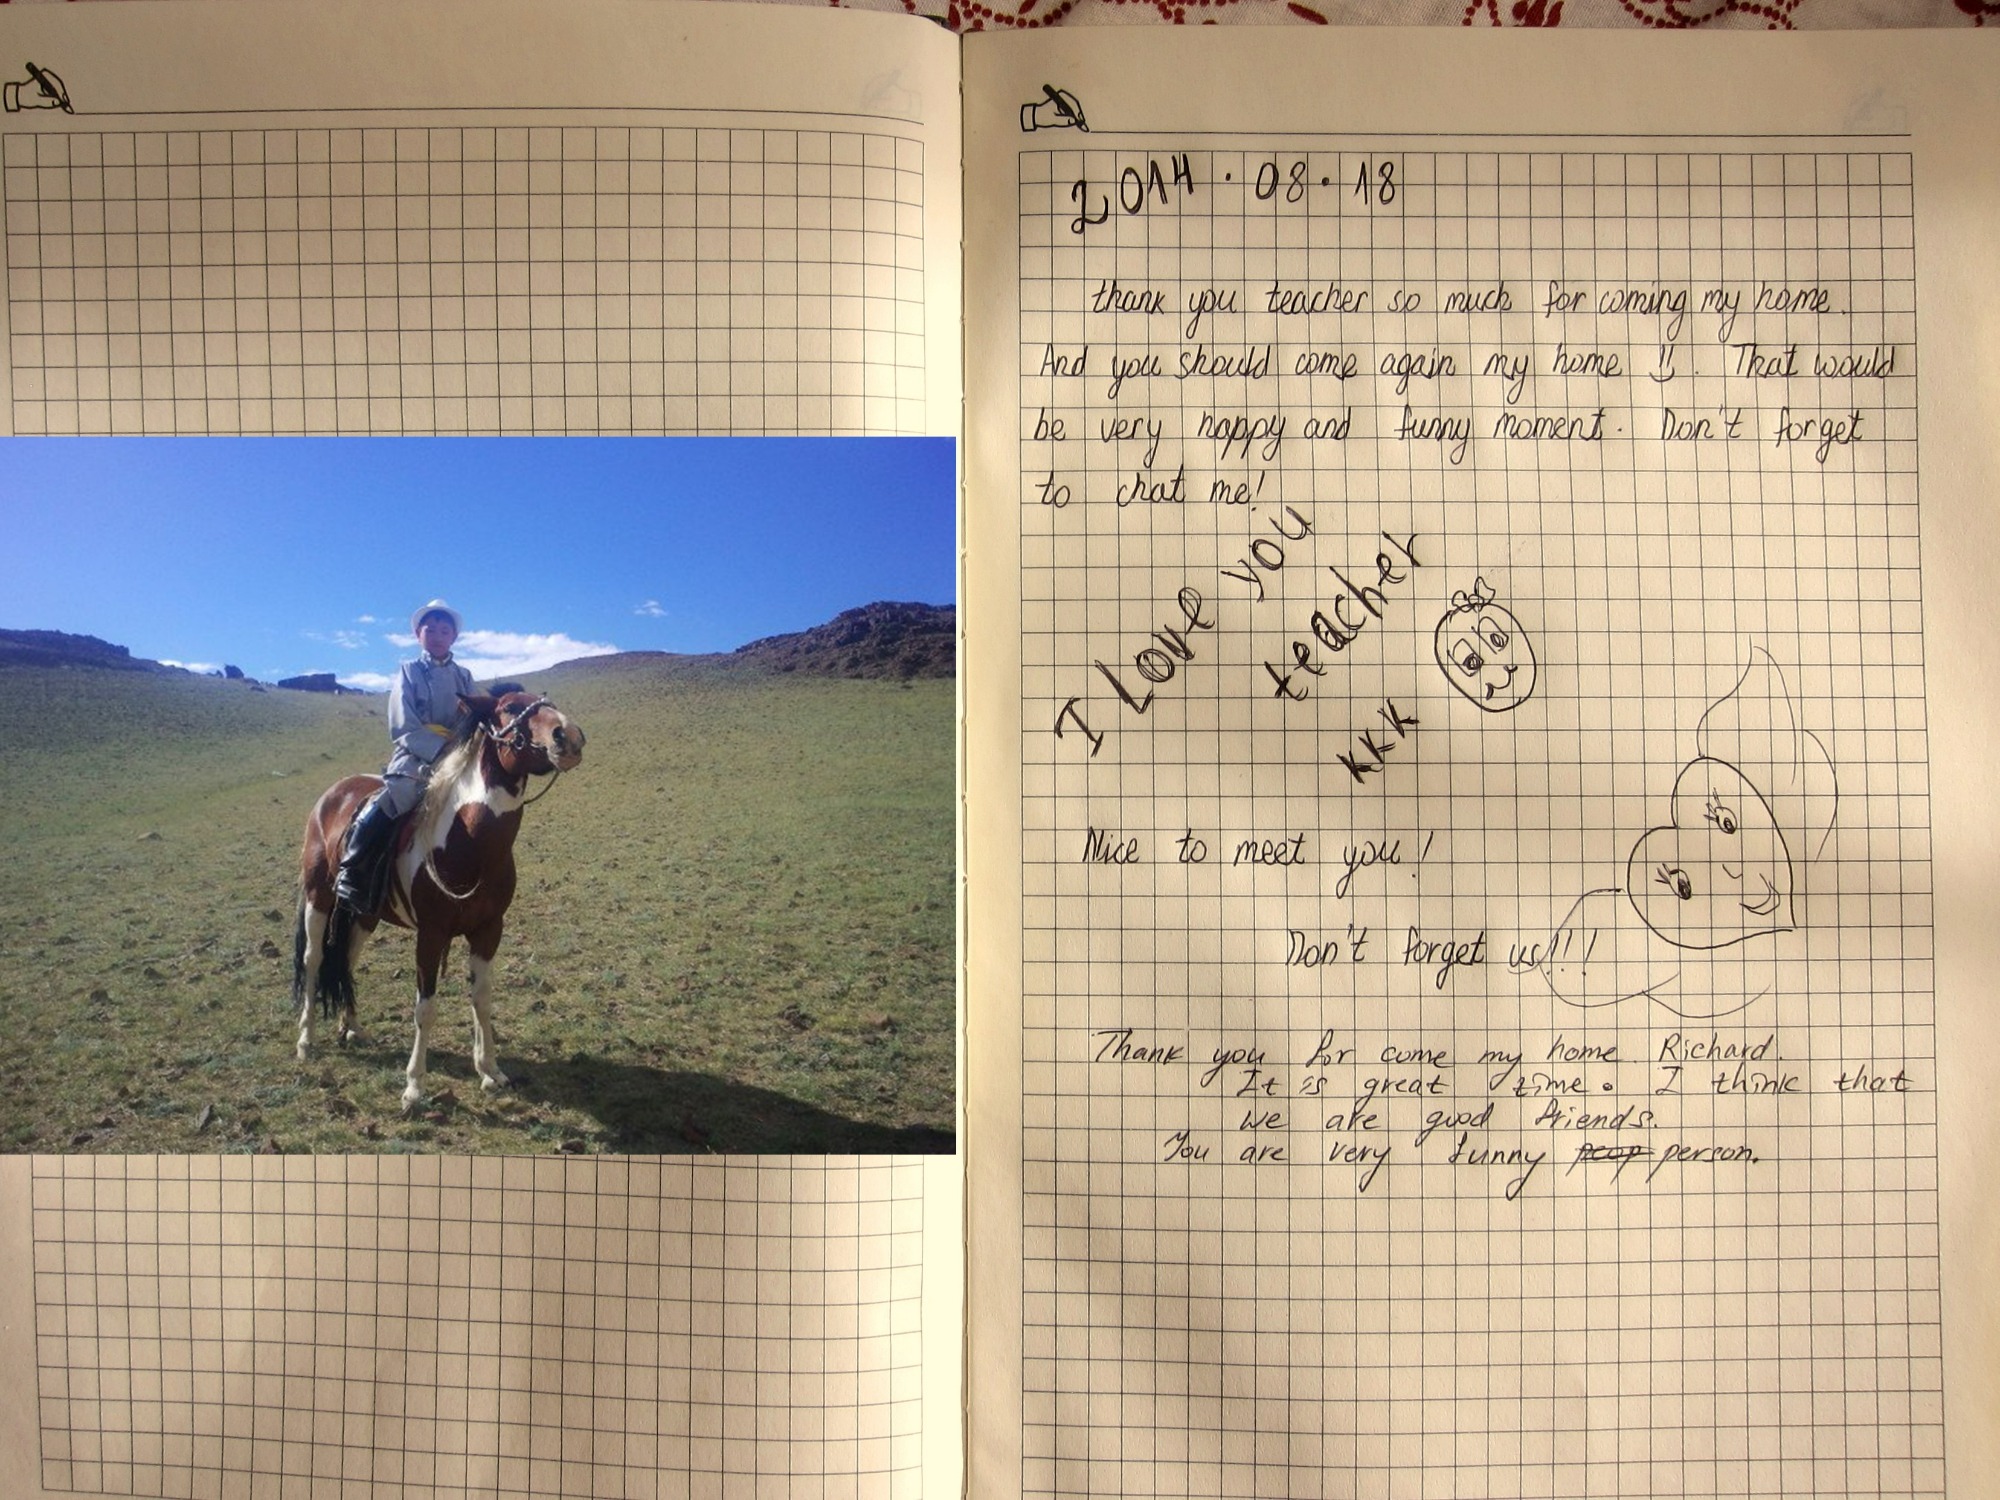 2014.08.18
thank you teacher so much for coming my home.
And you should come again my home !!. That would
be very happy and funny moment. Don't forget
to chat me!
I Love you
teacher
KKK
Nice to meet you!
Don't forget us!!!
Thank you for come my home. Richard.
It is great time. I think that
we are good friends.
You are very funny peop person.